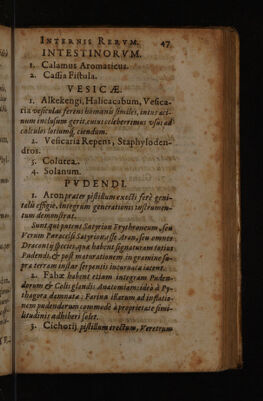 INTERNIS RERVM. 47
INTESTINORVM.
1. Calamus Aromaticus.
2. Cassia Fistula.
VESICÆ.
1. Alkekengi, Halicacabum, Vesica-
ria vesiculas ferens homanis similes, intus aci-
num inclusum gerit, cuius celeberrimus usus ad
calculos lotiumq; ciendum.
2. Vesicaria Repens, Staphyloden-
dros.
3. Colutea.
4. Solanum.
PVDENDI.
1. Aron præter pistillum erecti ferè geni-
talis effigiē, integrum generationis instrumen-
tum demonstrat.
Sunt qui putent Satyrion Erythroneum, seu
Verum Paracelsi Satyrion esse Aron, seu omnes
Dracontij species, quæ habent signaturam totius
Pudendi, & post maturationem in gramine su-
pra terram instar serpentis incuruata iacent.
2. Fabæ habent etiam integram Puden-
dorum & Colis glandis Anatomiam: ideò à Py-
thagora damnatæ: Farina illarum ad inflatio-
nem pudendorum commodè à proprietate simi-
litudinis adhiberi solet.
3. Cichorij pistillum erectum, Veretrum